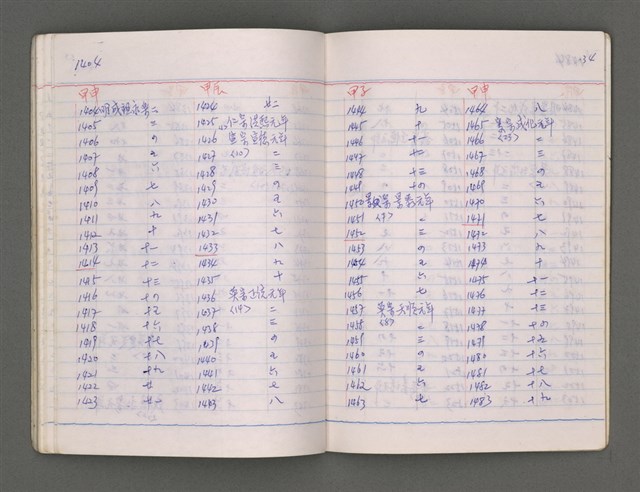 1404
甲申
1404明成祖永樂二
1405 三
1406 四
1407 五
1408 六
1409 七
1410 八
1411 九
1412 十
1413 十一
1414 十二
1415 十三
1416 十四
1417 十五
1418 十六
1419 十七
1420 十八
1421 十九
1422 廿
1423 廿一
甲辰
1424 廿二
1425仁宗洪熙元年
1426 宣宗宣德元年
1427 〈10〉 二
1428 三
1429 四
1430 五
1431 六
1432 七
1433 八
1434 九
1435 十
1436 英宗正統元年
1437 〈14〉 二
1438 三
1439 四
1440 五
1441 六
1442 七
1443 八
34
甲子
1444 九
1445 十
1446 十一
1447 十二
1448 十三
1449 十四
1450景宗景泰元年
1451 〈7〉 二
1452 三
1453 四
1454 五
1455 六
1456 七
1457 英宗天順元年
1458 〈8〉 二
1459 三
1460 四
1461 五
1462 六
1463 七
甲申
1464 八
1465 憲宗成化元年
1466 〈23〉 二
1467 三
1468 四
1469 五
1470 六
1471 七
1472 八
1473 九
1474 十
1475 十一
1476 十二
1477 十三
1478 十四
1479 十五
1480 十六
1481 十七
1482 十八
1483 十九